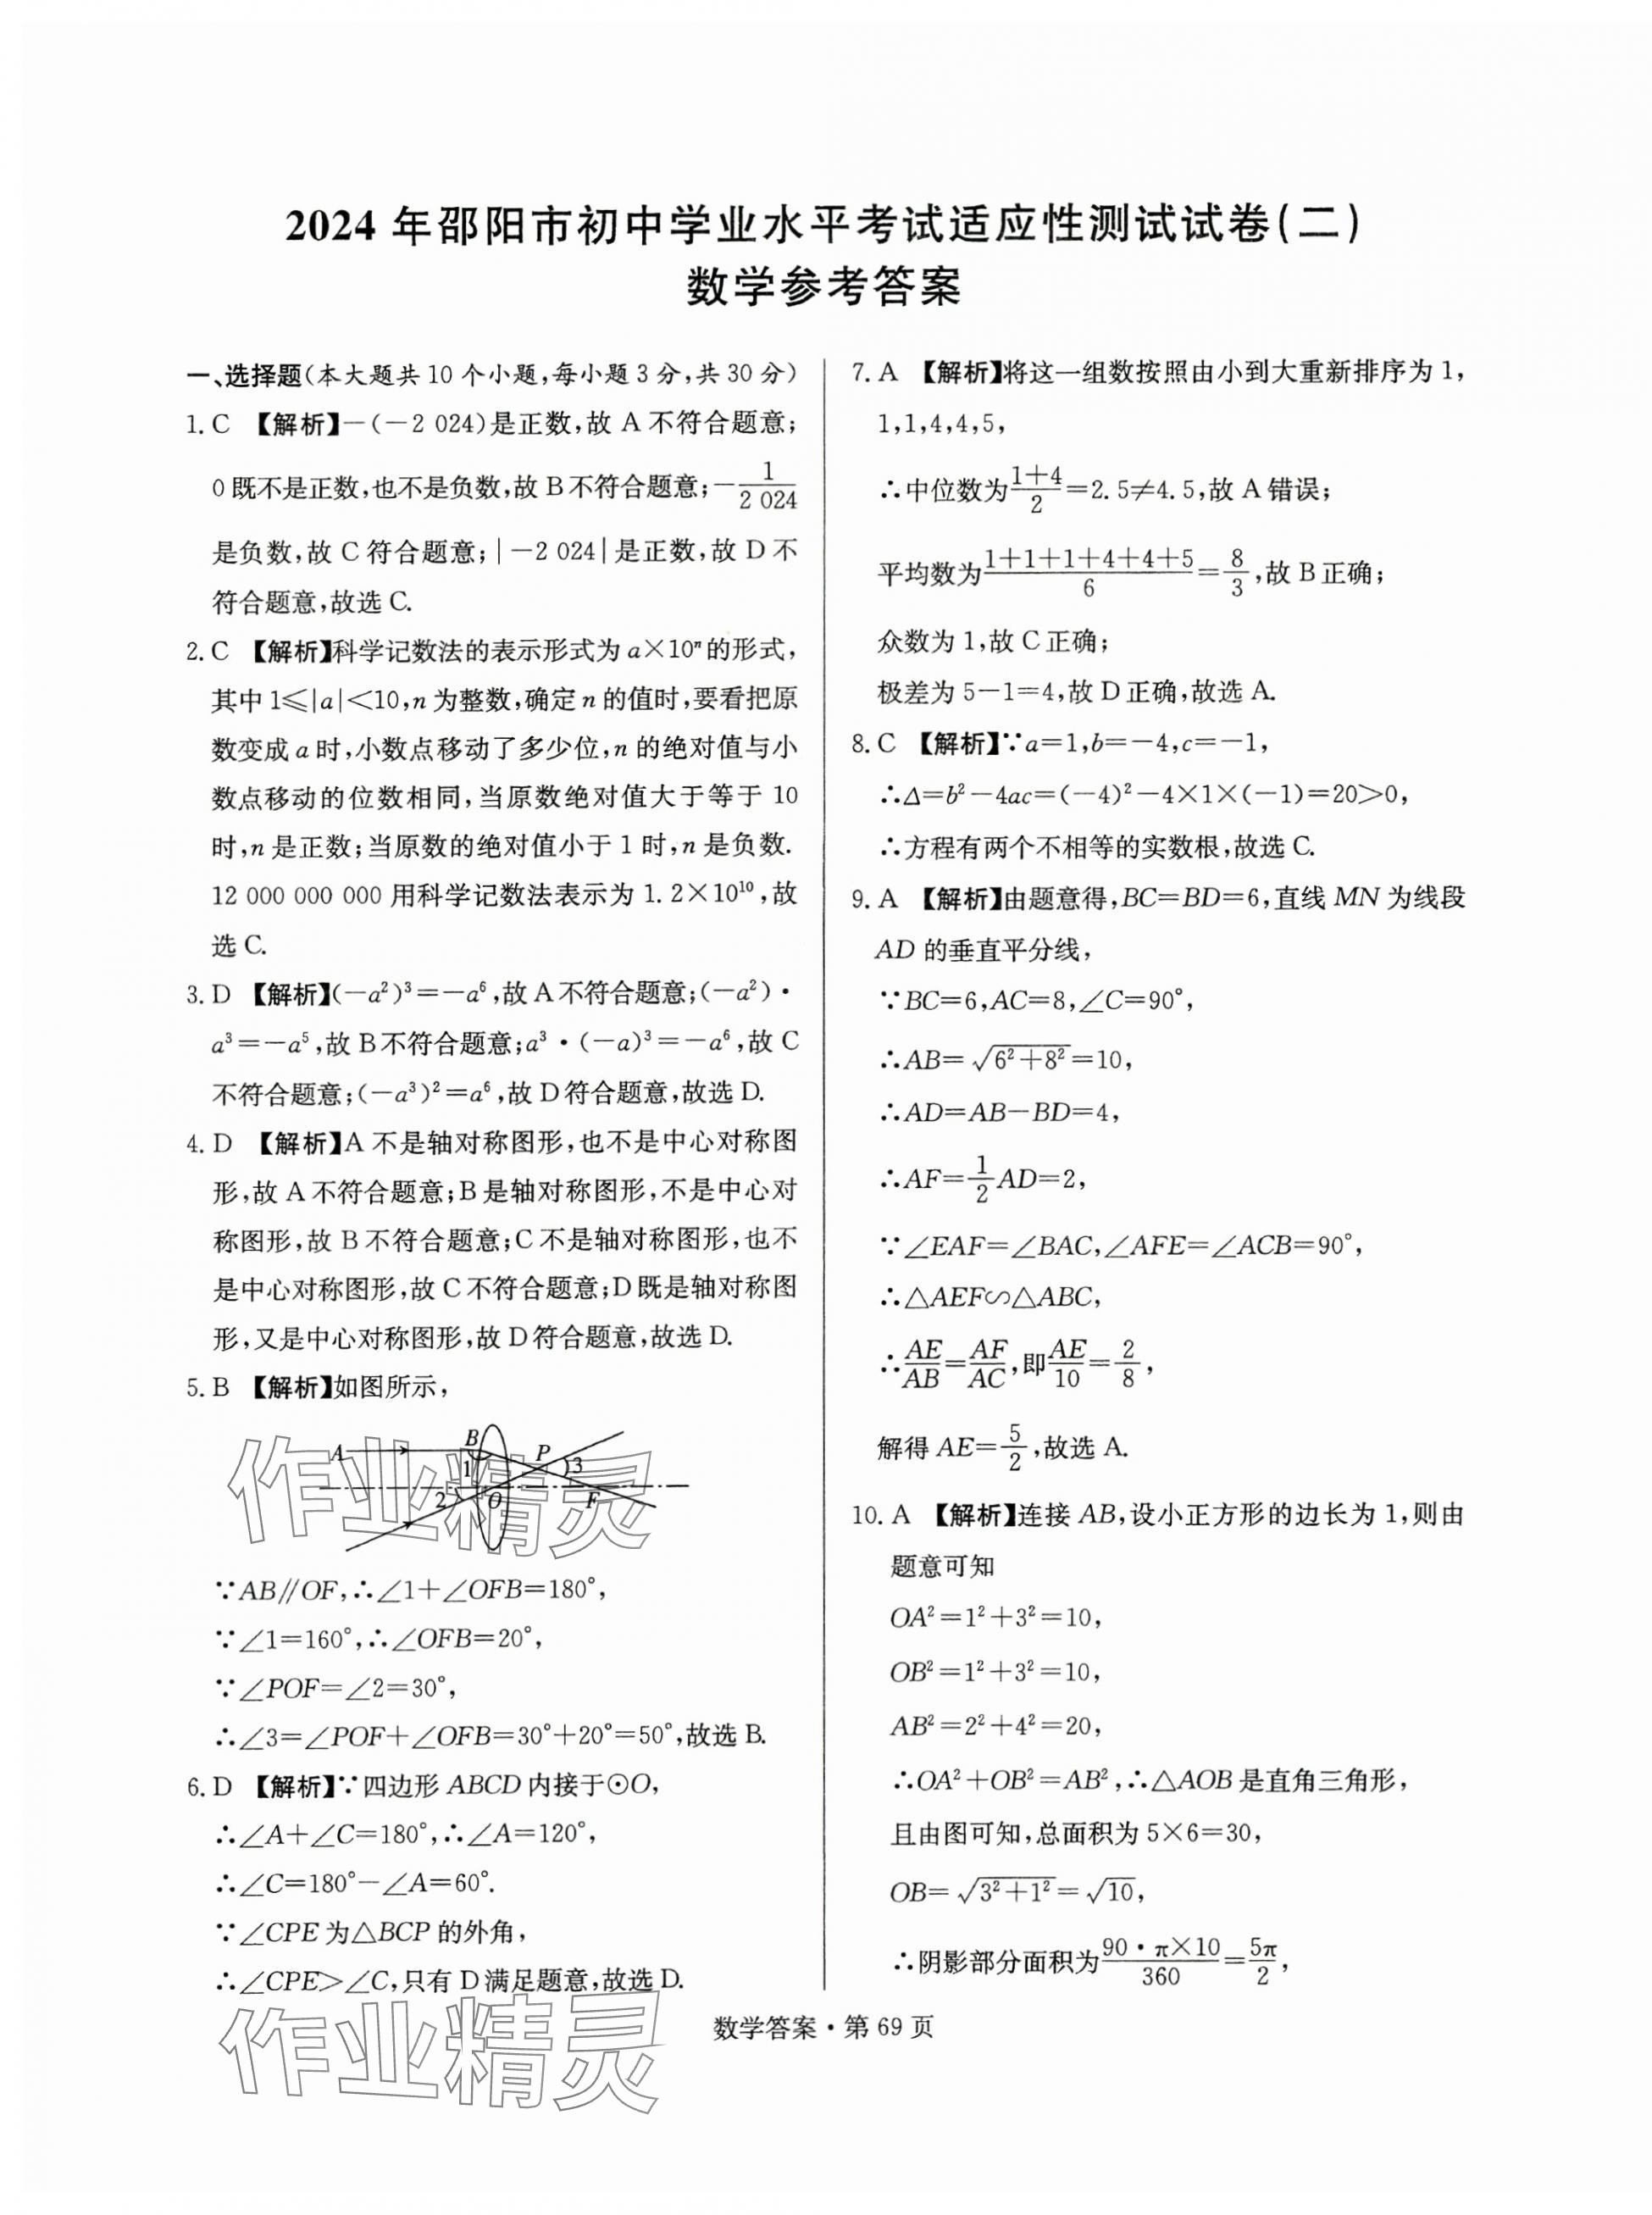 2024 年邵阳市初中学业水平考试适应性测试试卷(二)
数学参考答案
一、选择题(本大题共 10 个小题,每小题 3 分,共 30 分)
1. C 【解析】-(-2 024)是正数,故 A 不符合题意;
0 既不是正数,也不是负数,故 B 不符合题意;-1/2 024
是负数,故 C 符合题意;|-2 024|是正数,故 D 不
符合题意,故选 C.
2. C 【解析】科学记数法的表示形式为 a×10ⁿ 的形式,
其中 1≤|a|<10,n 为整数,确定 n 的值时,要看把原
数变成 a 时,小数点移动了多少位,n 的绝对值与小
数点移动的位数相同,当原数绝对值大于等于 10
时,n 是正数;当原数的绝对值小于 1 时,n 是负数.
12 000 000 000 用科学记数法表示为 1.2×10¹⁰,故
选 C.
3. D 【解析】(-a²)³=-a⁶,故 A 不符合题意;(-a²)·
a³=-a⁵,故 B 不符合题意;a³·(-a)³=-a⁶,故 C
不符合题意;(-a³)²=a⁶,故 D 符合题意,故选 D.
4. D 【解析】A 不是轴对称图形,也不是中心对称图
形,故 A 不符合题意;B 是轴对称图形,不是中心对
称图形,故 B 不符合题意;C 不是轴对称图形,也不
是中心对称图形,故 C 不符合题意;D 既是轴对称图
形,又是中心对称图形,故 D 符合题意,故选 D.
5. B 【解析】如图所示,
A B P 1 3 2 O F
作业精灵
∵AB∥OF,∴∠1+∠OFB=180°,
∵∠1=160°,∴∠OFB=20°,
∵∠POF=∠2=30°,
∴∠3=∠POF+∠OFB=30°+20°=50°,故选 B.
6. D 【解析】∵四边形 ABCD 内接于⊙O,
∴∠A+∠C=180°,∴∠A=120°,
∴∠C=180°-∠A=60°.
∵∠CPE 为△BCP 的外角,
∴∠CPE>∠C,只有 D 满足题意,故选 D.
7. A 【解析】将这一组数按照由小到大重新排序为 1,
1,1,4,4,5,
∴中位数为(1+4)/2=2.5≠4.5,故 A 错误;
平均数为(1+1+1+4+4+5)/6=8/3,故 B 正确;
众数为 1,故 C 正确;
极差为 5-1=4,故 D 正确,故选 A.
8. C 【解析】∵a=1,b=-4,c=-1,
∴Δ=b²-4ac=(-4)²-4×1×(-1)=20>0,
∴方程有两个不相等的实数根,故选 C.
9. A 【解析】由题意得,BC=BD=6,直线 MN 为线段
AD 的垂直平分线,
∵BC=6,AC=8,∠C=90°,
∴AB=√(6²+8²)=10,
∴AD=AB-BD=4,
∴AF=1/2 AD=2,
∵∠EAF=∠BAC,∠AFE=∠ACB=90°,
∴△AEF∽△ABC,
∴AE/AB=AF/AC,即AE/10=2/8,
解得 AE=5/2,故选 A.
10. A 【解析】连接 AB,设小正方形的边长为 1,则由
题意可知
OA²=1²+3²=10,
OB²=1²+3²=10,
AB²=2²+4²=20,
∴OA²+OB²=AB²,∴△AOB 是直角三角形,
且由图可知,总面积为 5×6=30,
OB=√(3²+1²)=√10,
∴阴影部分面积为(90·π×10)/360=5π/2,
数学答案·第 69 页
作业精灵